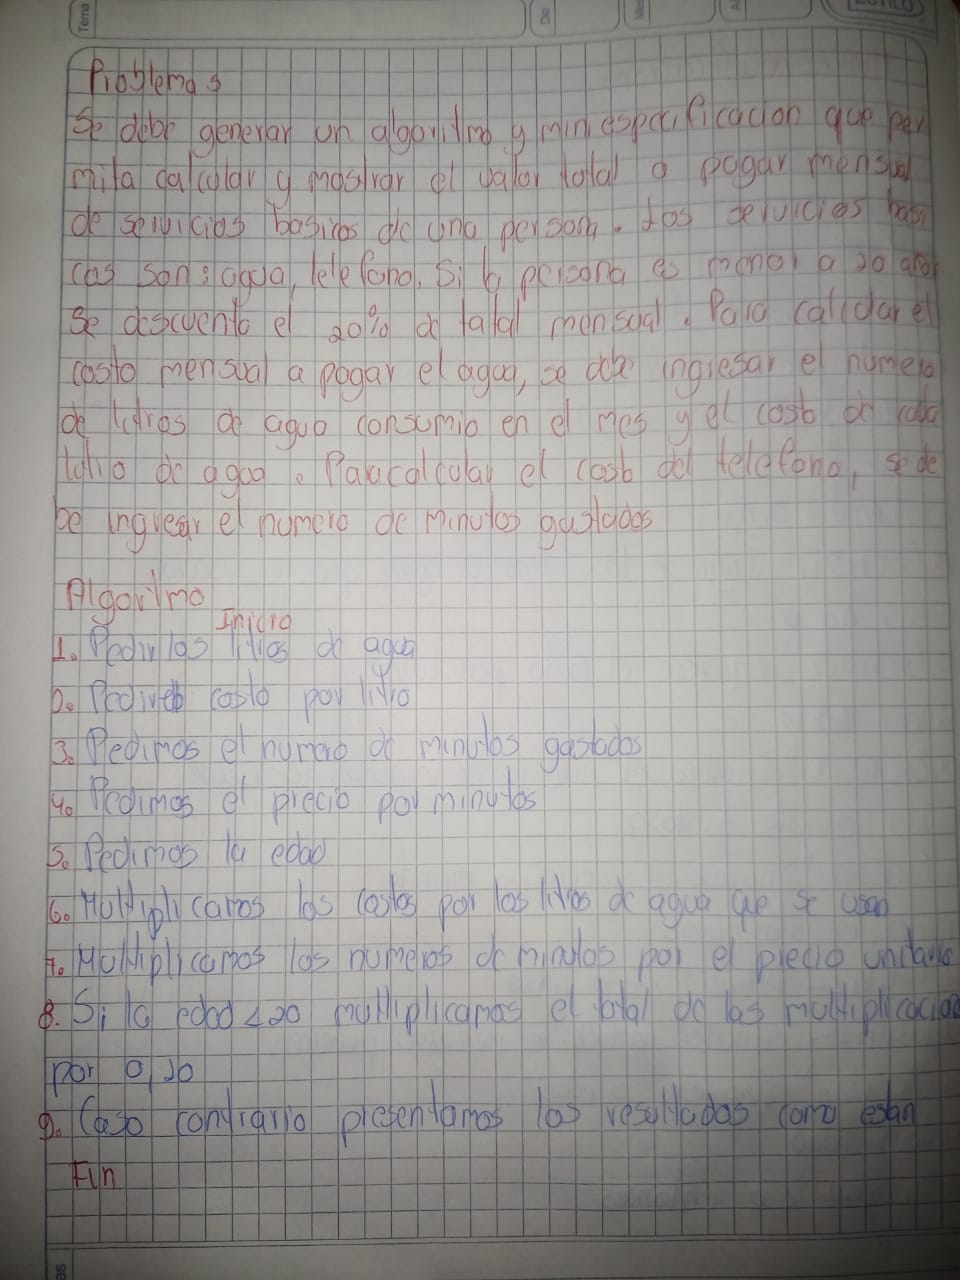 Tema
Problema s
Se debe generar un algoritmo y miniespecificacion que per
mita calcular y mostrar el valor total a pagar mensual
de servicios basicos de una persona. Los servicios basi
cos son: agua, telefono. Si la persona es menor a 20 años
se descuenta el 20% de total mensual. Para calcular el
costo mensual a pagar el agua, se debe ingresar el numero
de litros de agua consumio en el mes y el costo de cada
litro de agua. Para calcular el costo del telefono, se de
be ingresar el numero de minutos gastados
Algoritmo
Inicio
1. Pedir los litros de agua
2. Pedir el costo por litro
3. Pedimos el numero de minutos gastados
4. Pedimos el precio por minutos
5. Pedimos la edad
6. Multiplicamos los costos por los litros de agua que se usan
7. Multiplicamos los numeros de minutos por el precio unitario
8. Si la edad <20 multiplicamos el total de las multiplicacion
por 0,20
9. Caso contrario presentamos los resultados como estan
Fin